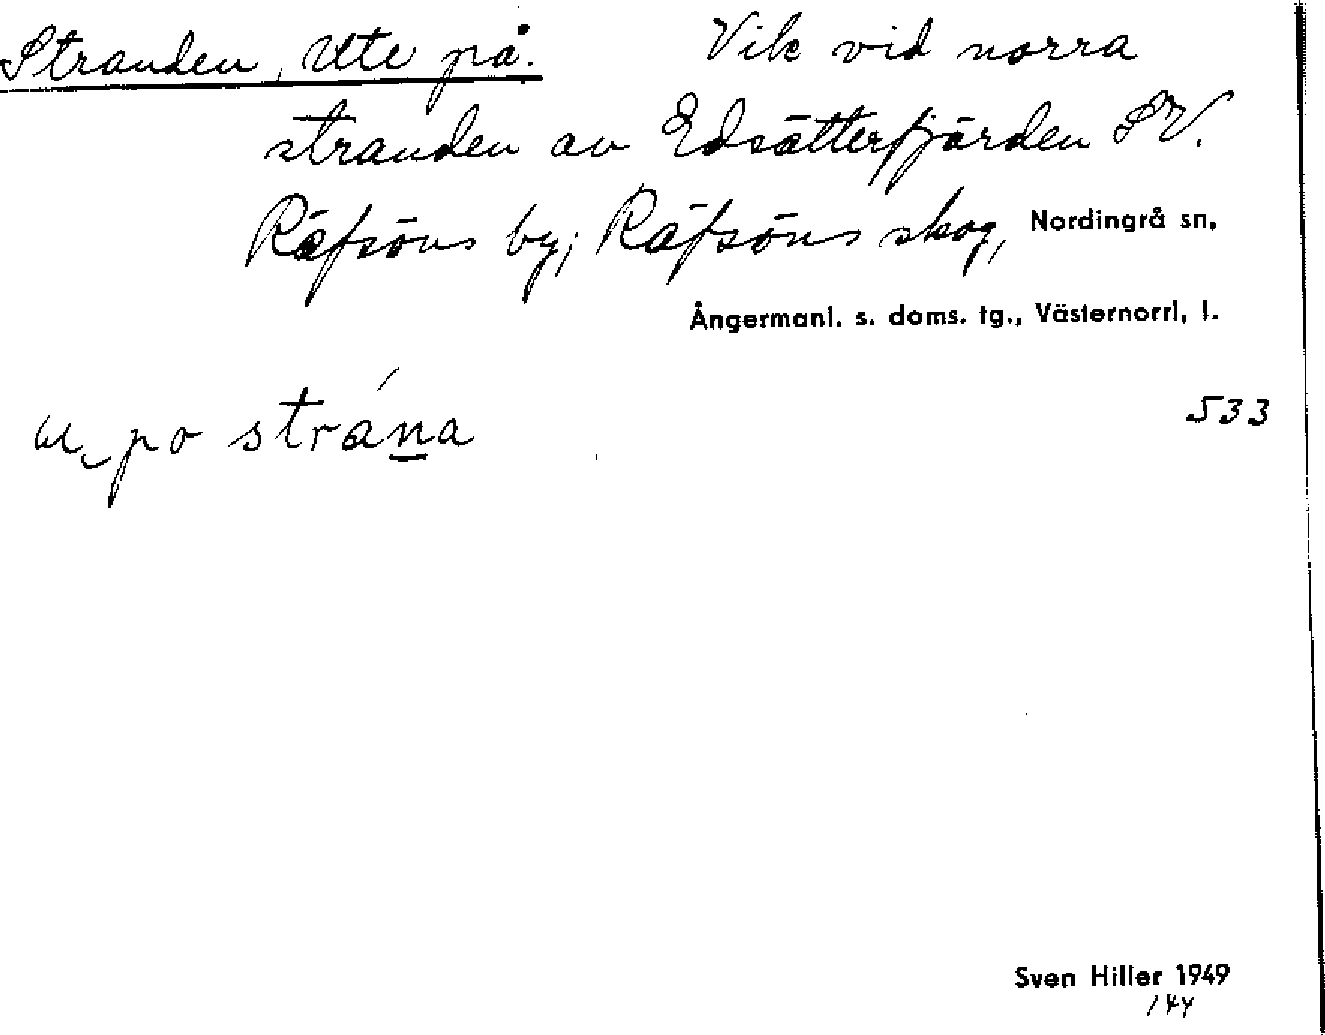 Stranden, Ute på. Vik vid norra
stranden av Edsätterfjärden SV.
Räfsöns by; Räfsöns skog, Nordingrå sn,
Ångermanl. s. doms. tg., Västernorrl, l.
533
po strána
Sven Hiller 1949
144